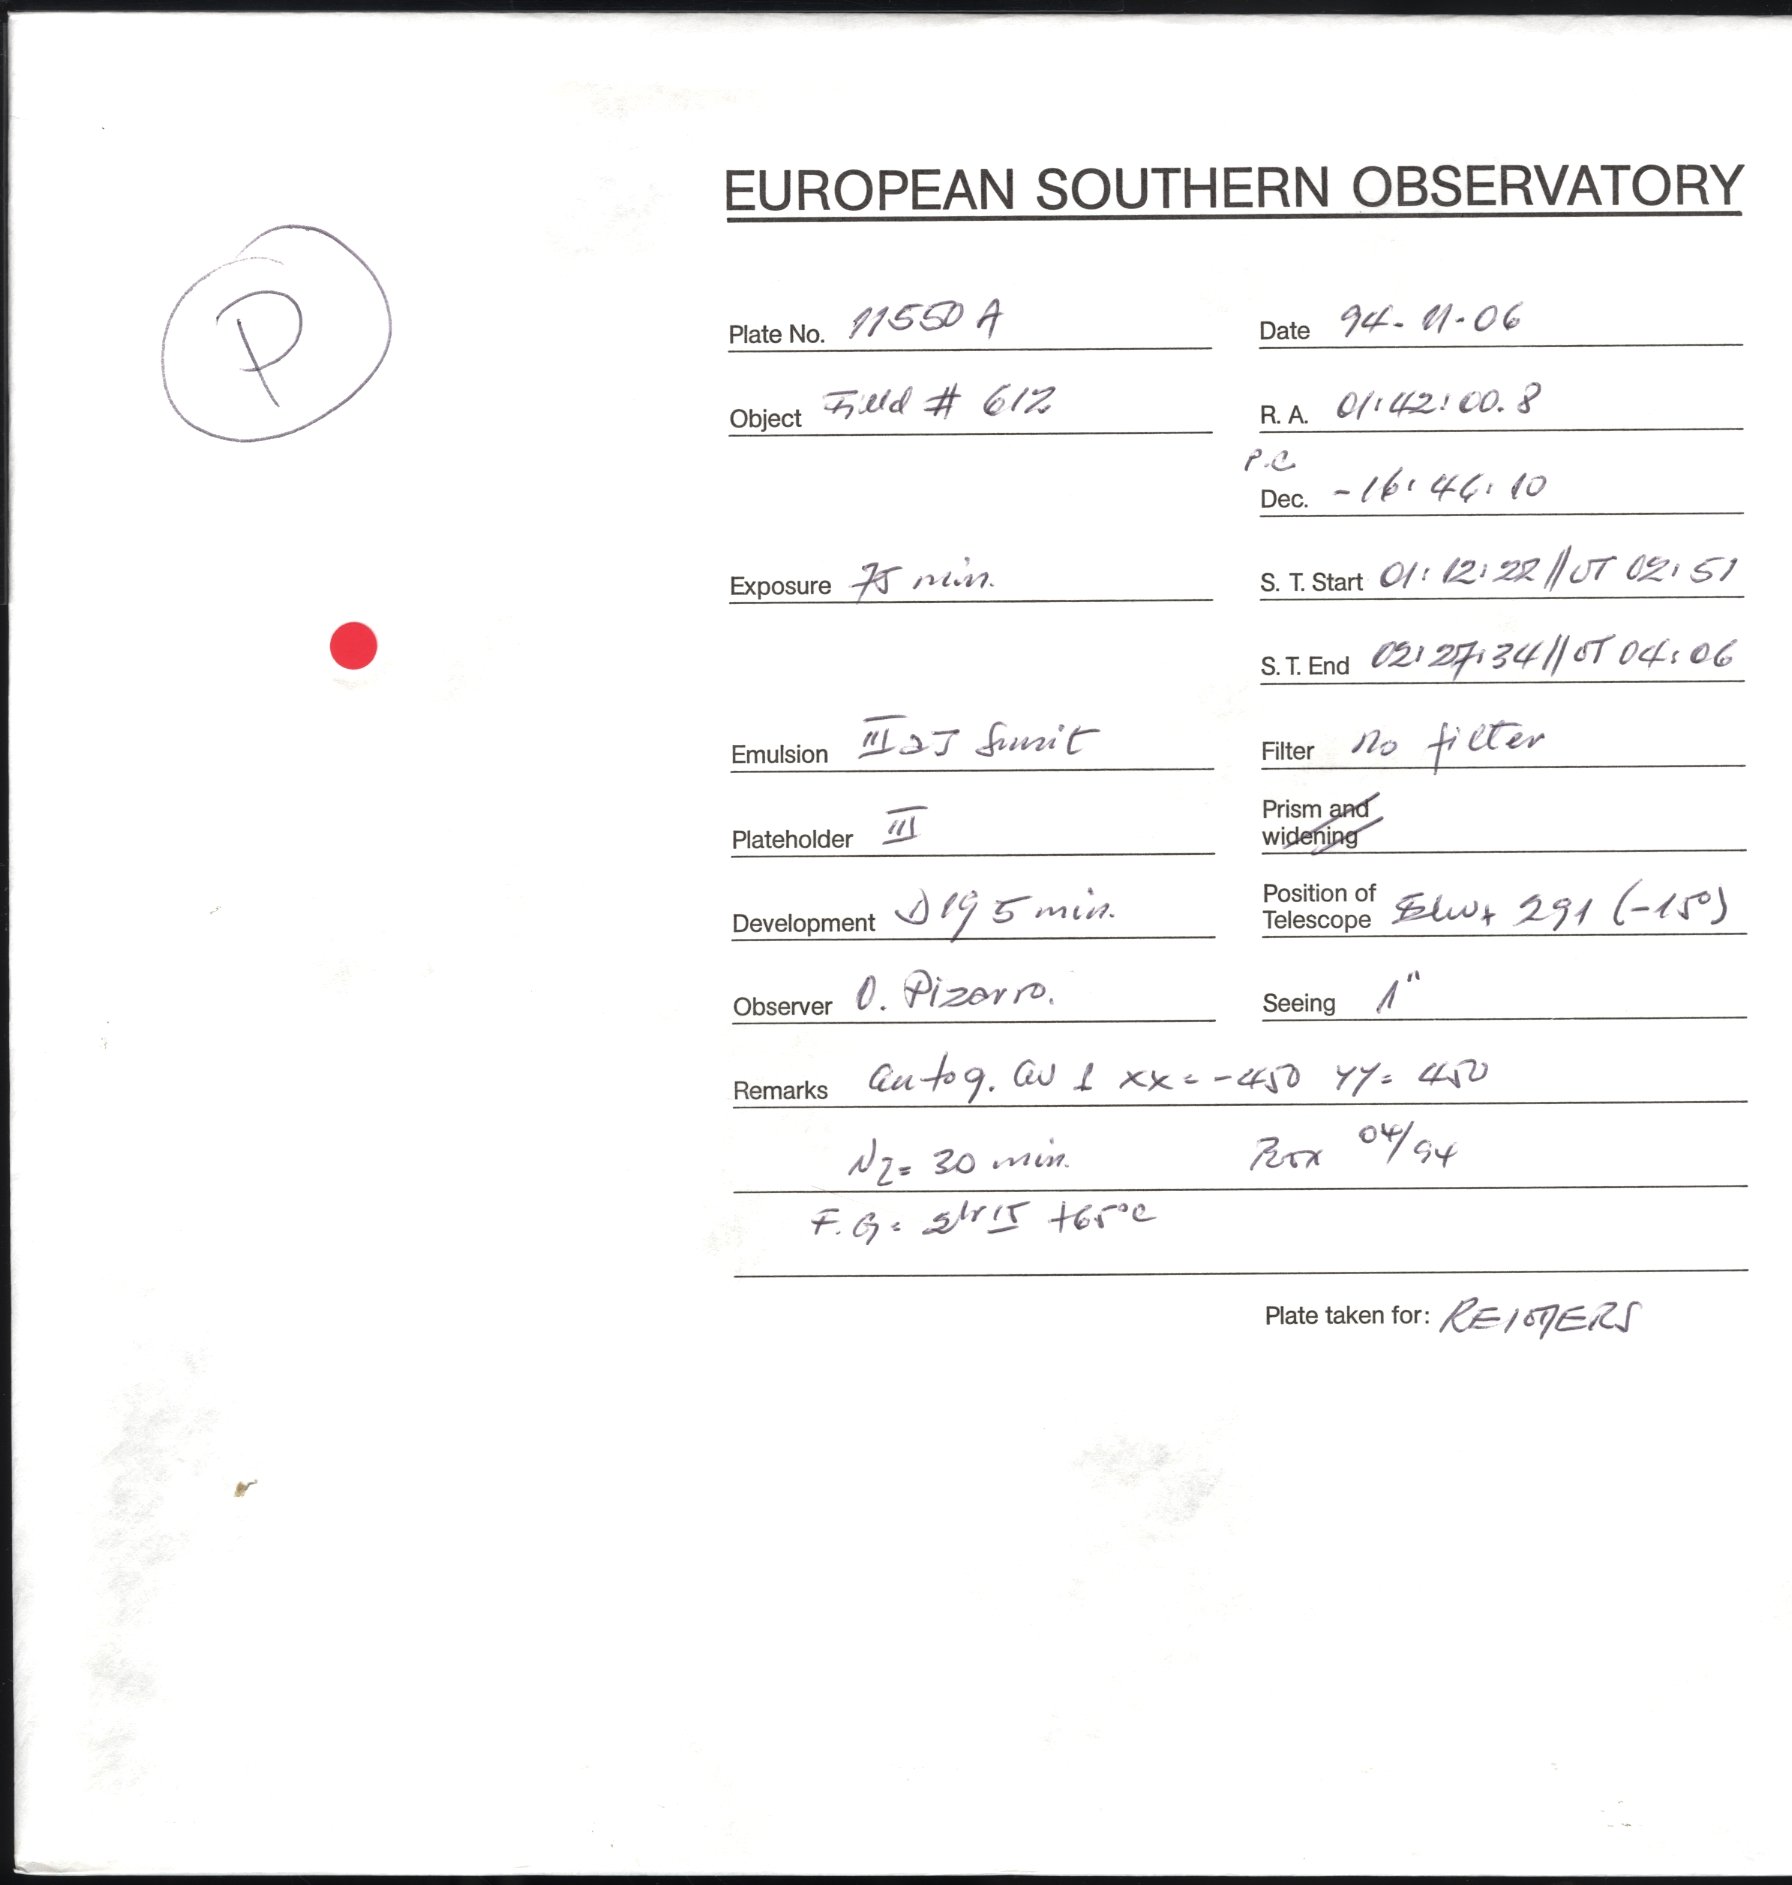 EUROPEAN SOUTHERN OBSERVATORY
P
Plate No. 11550 A
Date 94-11-06
Object Field # 612
R. A. 01:42:00.8
P.C
Dec. -16:46:10
Exposure 75 min.
S. T. Start 01:12:22 // UT 02:51
S. T. End 02:27:34 // UT 04:06
Emulsion III aJ
Filter no filter
Plateholder III
Prism and
widening
Development D19 5 min.
Position of
Telescope 291 (-15°)
Observer O. Pizarro.
Seeing 1"
Remarks autog. xx=-450 yy= 450
N2= 30 min. 04/94
F.G= +65°C
Plate taken for: REIMERS